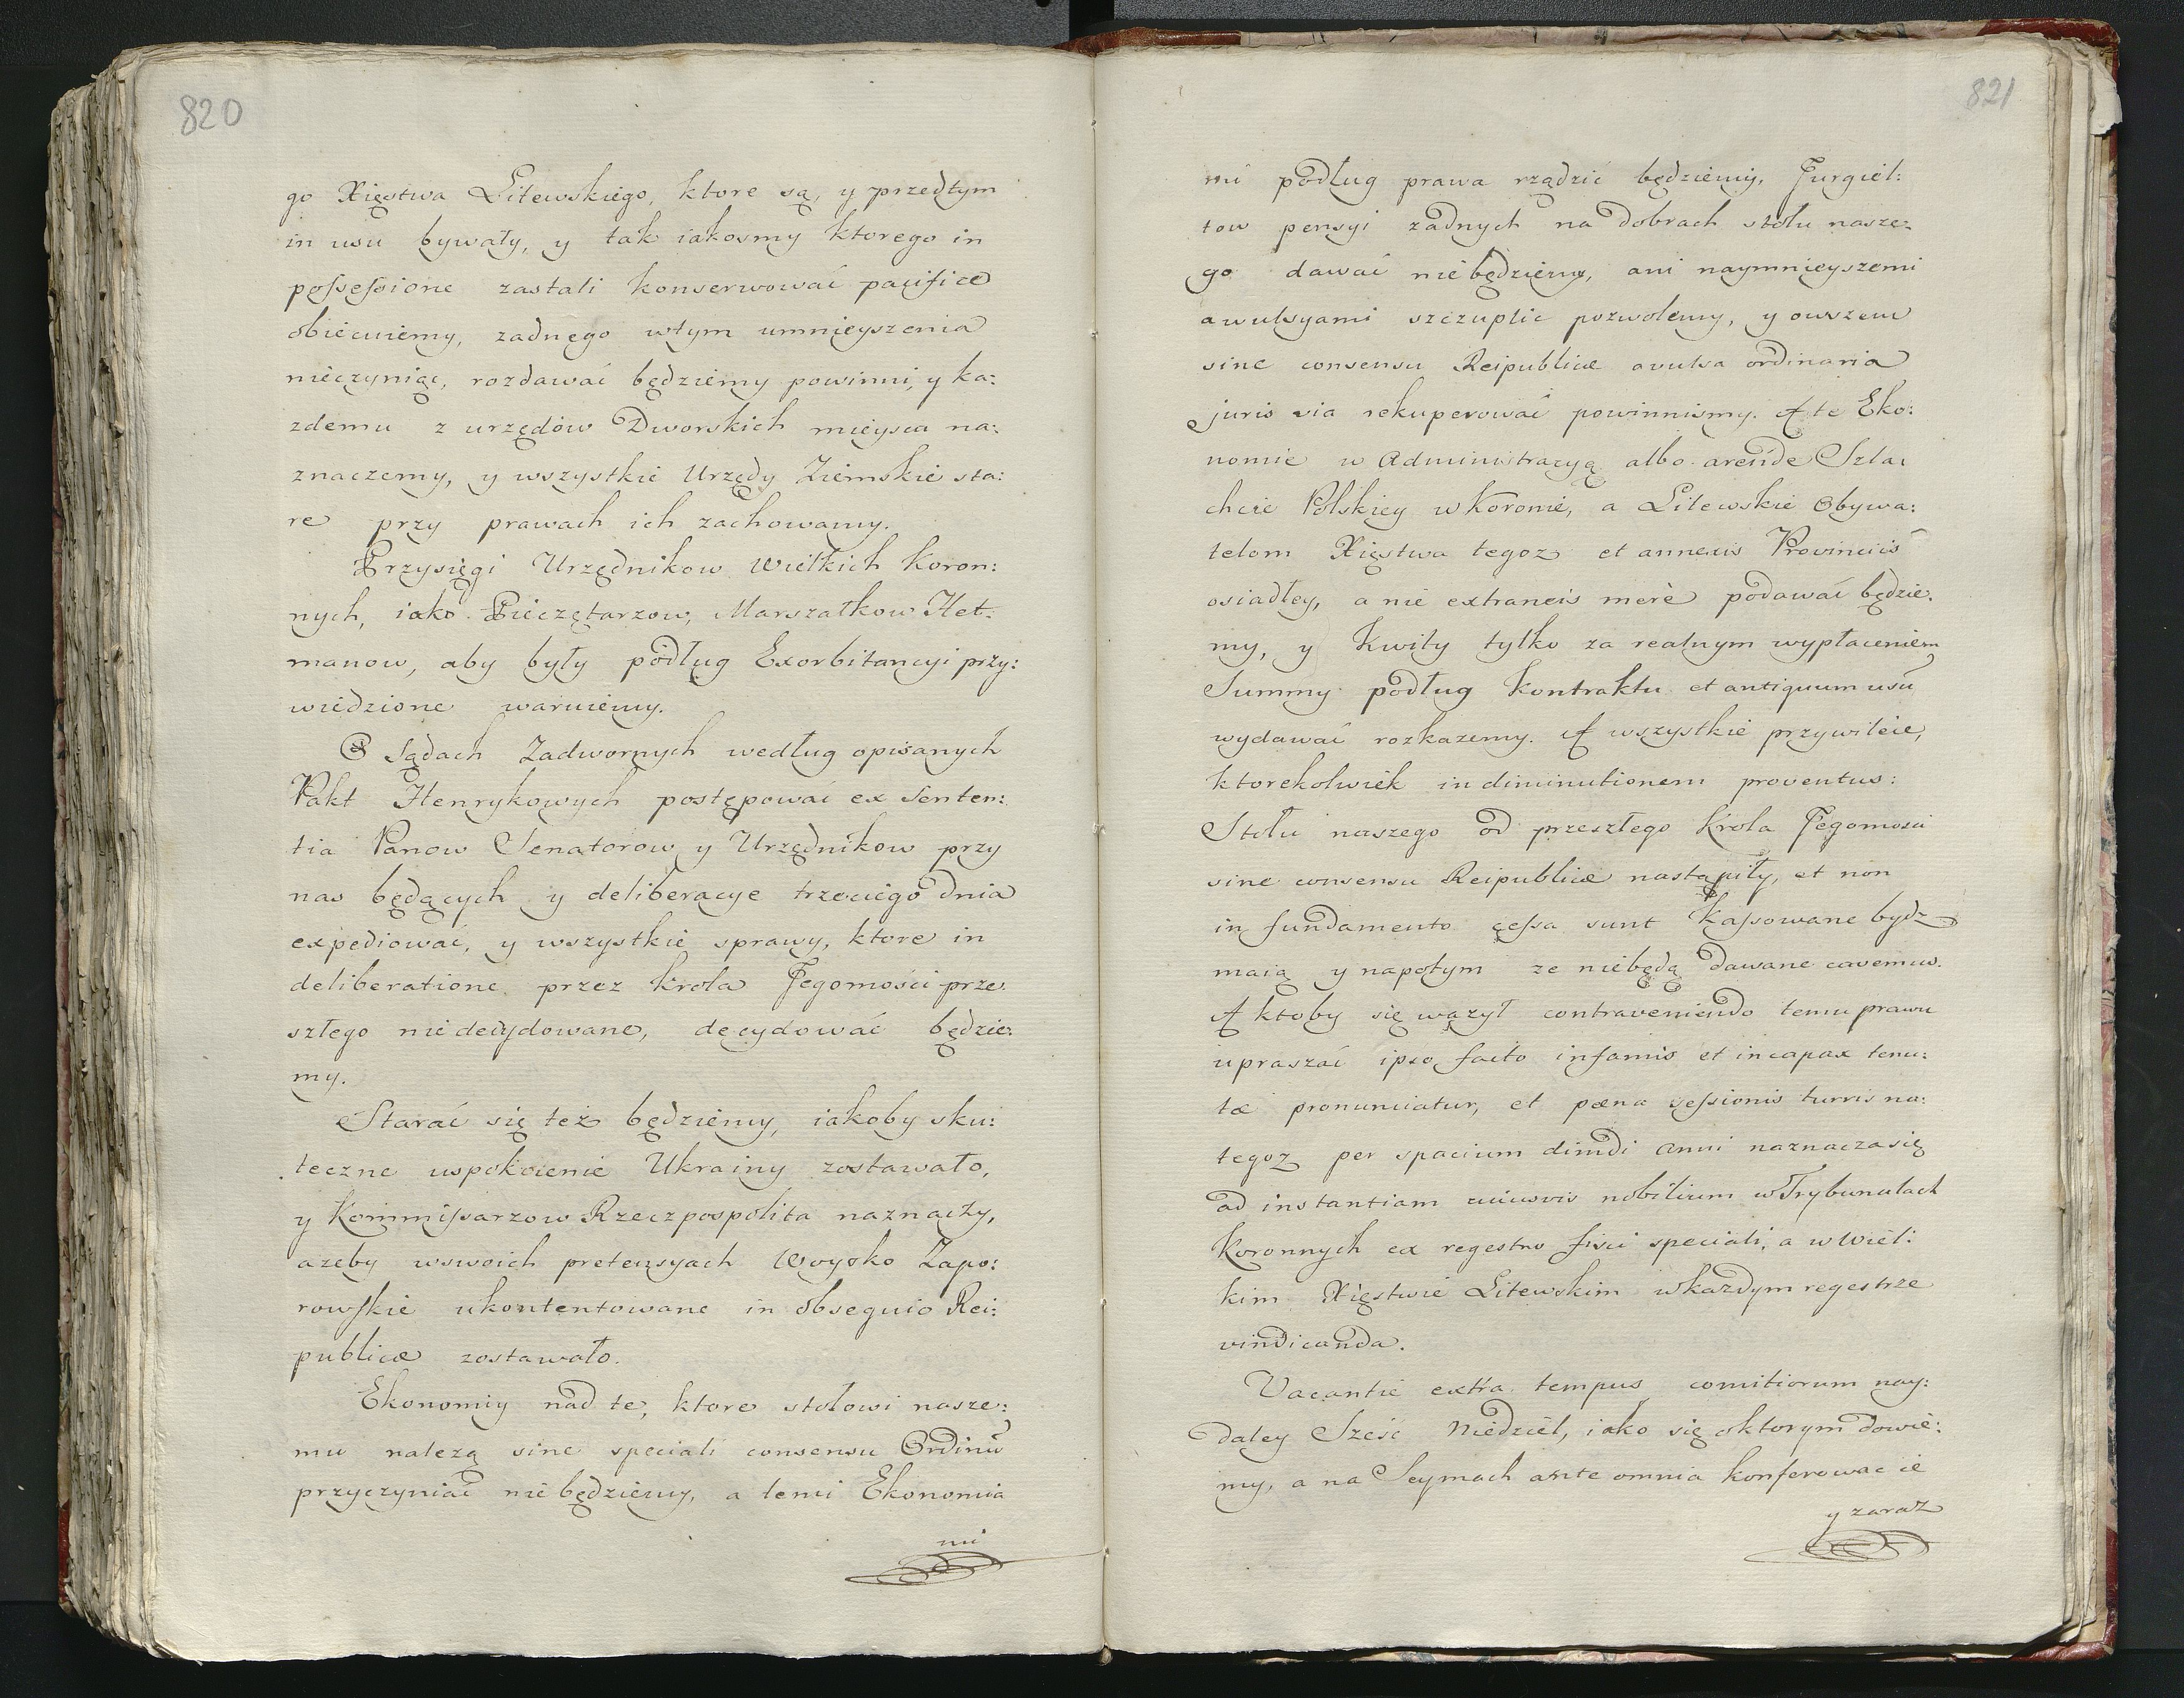 820
go Xięstwa Litewskiego, ktore są, y przedtym
in usu bywały, y tak iakosmy ktorego in
possessione zastali konserwować pacifice
obiecuiemy, zadnego wtym umnieyszenia
nieczyniąc, rozdawać będziemy powinni, y ka:
zdemu z urzędów Dworskich mieysca na:
znaczemy, y wszystkie Urzędy Ziemskie sta:
re przy prawach ich zachowamy.
Przysięgi Urzędnikow Wielkich Koron:
nych, iako Pieczętarzow, Marszałkow Het-
manow, aby były podług Exorbitancyi przy:
wiedzione waruiemy.
O Sądach Zadwornych według opisanych
Pakt Henrykowych postępować ex Senten:
tia Panow Senatorow y Urzędnikow przy
nas będących y deliberacye trzeciego dnia
expediować, y wszystkie sprawy, ktore in
deliberatione przez Krola Jegomości prze.
szłego niedecydowane, decydować będzie:
my.
Starać się też będziemy, iakoby sku:
teczne uspokoienie Ukrainy zostawało,
y Kommissarzow Rzeczpospolita naznaczy,
azeby wswoich pretensyach Woysko Zapo:
rowskie ukontentowane in obsequio Rei:
publicæ zostawało.
Ekonomiy nad te, ktore stołowi nasze:
mu nalezą sine speciali consensu Ordinũ
przyczyniać niebędziemy, a temi Ekonomia
mi
821
mi podług prawa rządzić będziemy, Jurgiel:
tow pensyi zadnych na dobrach stołu nasze:
go dawać niebędziemy, ani naymnieyszemi
awulsyami szczuplic pozwolemy, y owszem
sine consensu Reipublicæ avulsa ordinaria
juris via rekuperować powinnismy. A te Eko:
nomie w Administracyą albo arendę Szla:
chcie Polskiey w Koronie, a Litewskie Obywa:
telom Xięstwa tegoz et annexis Provinciis
osiadłey, a nie extraneis merè podawać będzie.
my, y Kwity tylko za realnym wypłaceniem
Summy podług Kontraktu et antiquum usũ
wydawać rozkazemy. A wszystkie przywileie,
ktorekolwiek in diminutionem proventus:
Stołu naszego od przeszłego Krola Jegomosci
sine consensu Reipublicæ nastąpiły, et non
in fundamento cessa sunt Kassowane bydz
maią y napotym ze niebędą dawane cavemus.
A ktoby się wązył contraveniendo temu prawu
upraszać ipso facto infamis et incapax tenu:
tæ pronunciatur, et pæna sessionis turris na:
tegoz per spacium dimidi anni naznacza się
ad instantiam cuiusvis nobilium w Trybunałach
Koronnych ex regestro fisci speciali, a w Wiel:
kim Xięstwie Litewskim wkazdym regestrze
vindicanda.
Vacantie extra tempus comitiorum nay:
daley Sześć Niedziel, iako się oktorym dowie:
my, a na Seymach ante omnia konferowac ie
y zaraz